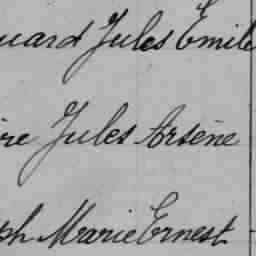 uard Jules Émile
ire Jules Arsène
ph Marie Ernest